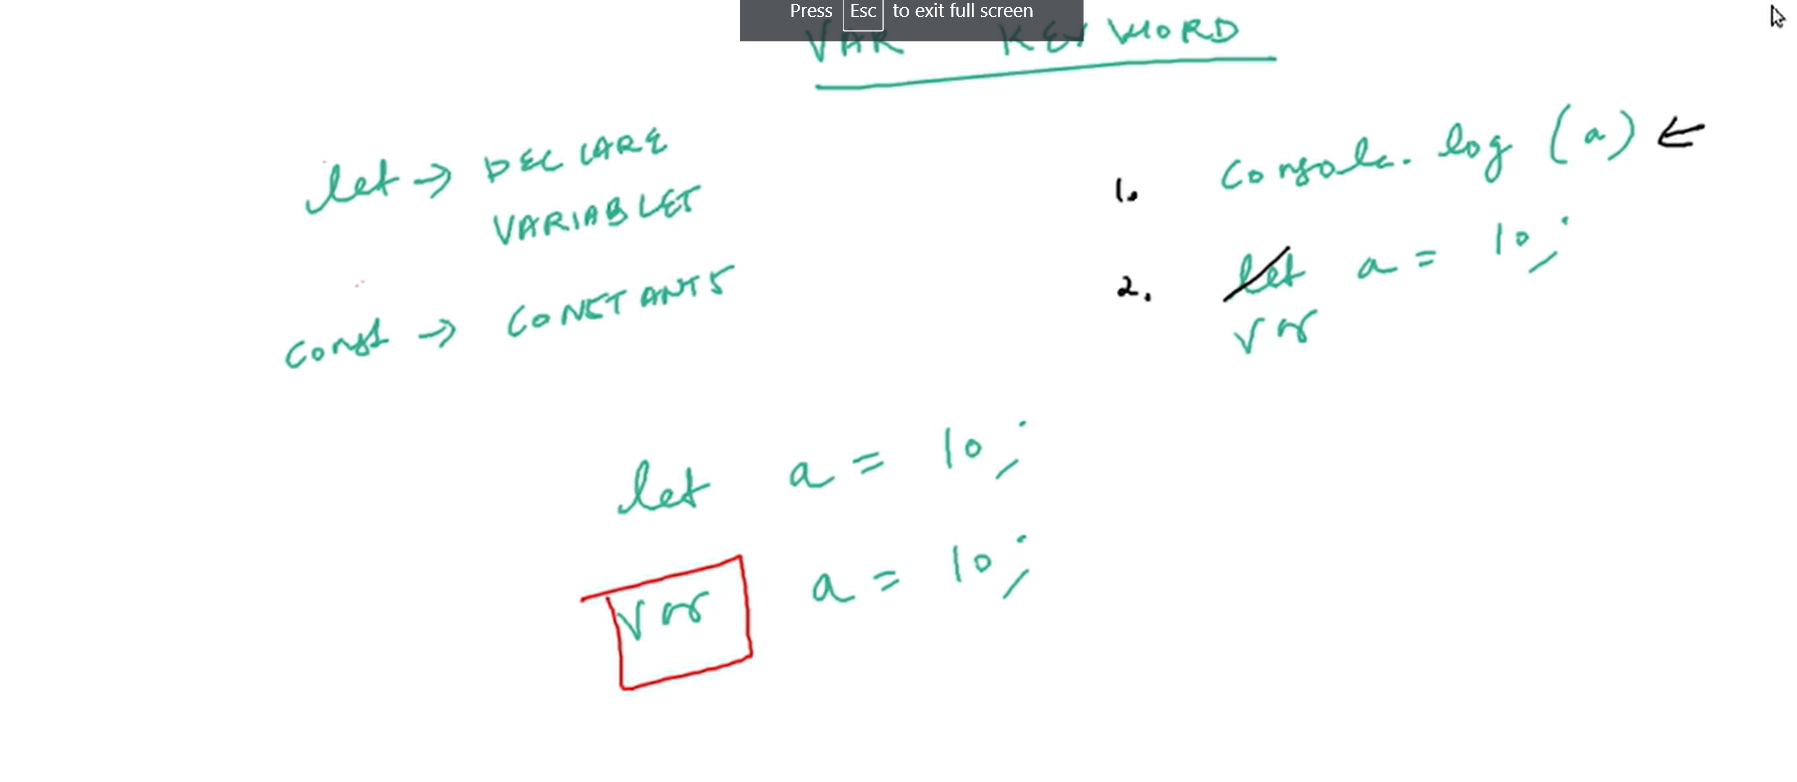 Press Esc to exit full screen
VAR KEYWORD
let → DECLARE
VARIABLES
const → CONSTANTS
1. Console.log (a) ←
2. let a = 10;
var
let a = 10;
var a = 10;